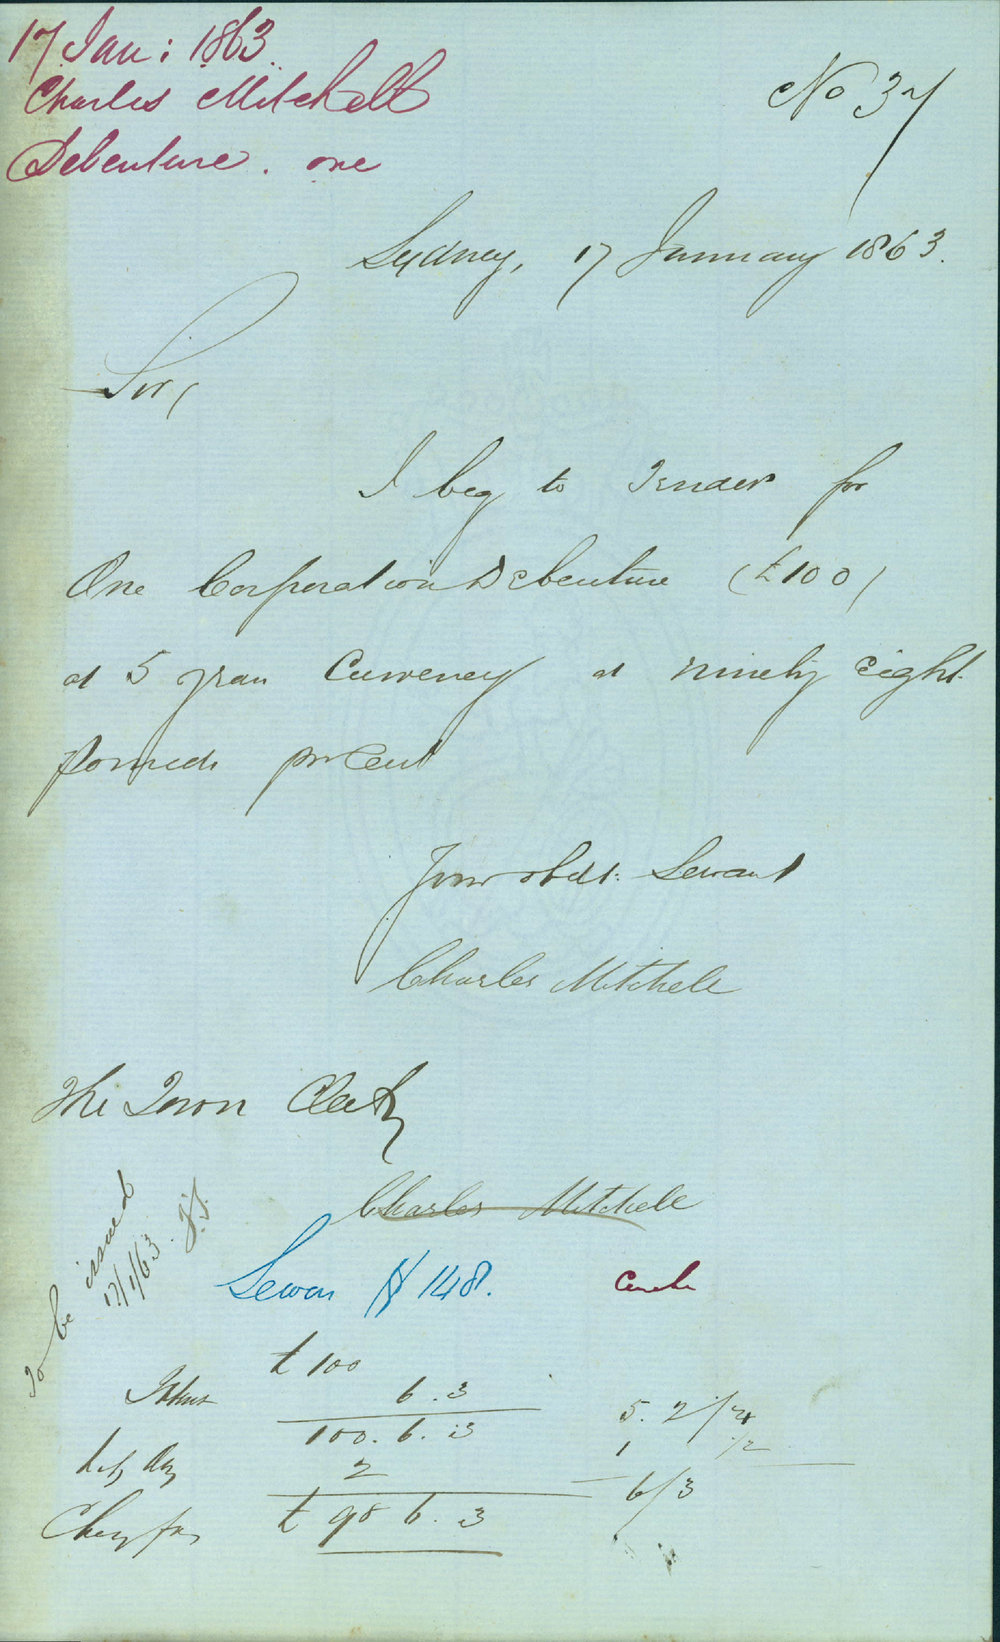 17 Jan: 1863.
Charles Mitchell
Debenture. one
No 37
Sydney, 17 January 1863.
Sir,
I beg to Tender for
One Corporation Debenture (£100)
at 5 years Currency at ninety eight
pounds pr Cent
Your obdt: Servant
Charles Mitchell
The Town Clerk
Charles Mitchell
To be issued
17/1/63.
Sewer № 148.
£100
6.3
5.2/4
100.6.3
1 /2
2
6/3
Cheq for
£98 6.3